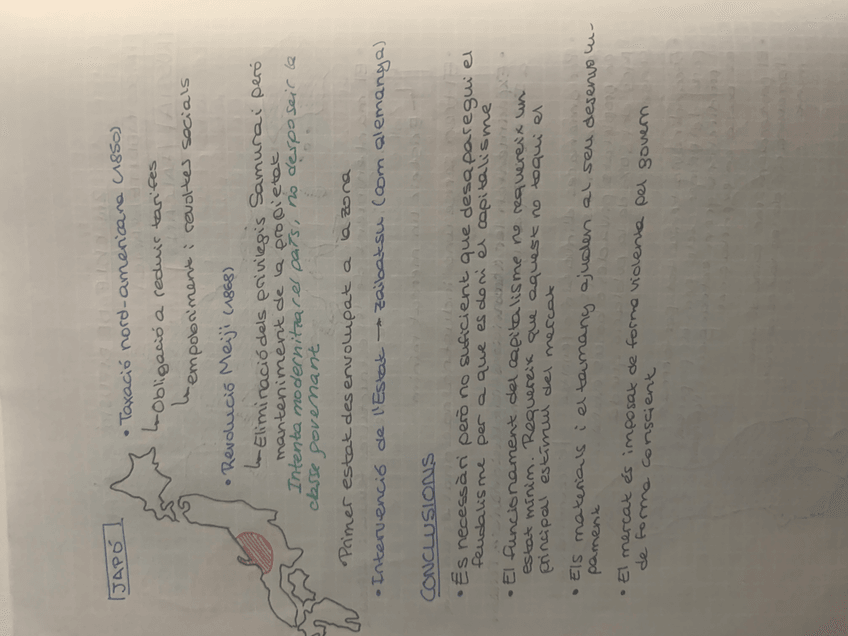 JAPÓ
• Taxació nord-americana (1850)
↳ Obligació a reduir tarifes
↳ empobriment i revoltes socials
• Revolució Meiji (1868)
↳ Eliminació dels privilegis Samurai però
manteniment de la propietat
Intenta modernitzar el país, no desposeir la
classe governant
• Primer estat desenvolupat a la zona
• Intervenció de l'Estat → zaibatsu (com alemanya)
CONCLUSIONS
• És necessàri però no suficient que desaparegui el
feudalisme per a que es doni el capitalisme
• El funcionament del capitalisme no requereix un
estat mínim. Requereix que aquest no toqui el
principal estímul del mercat
• Els materials i el tamany ajuden al seu desenvolu-
pament
• El mercat és imposat de forma violenta pel govern
de forma conscient